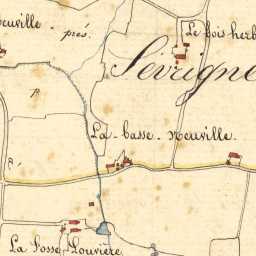 euville
prés.
Le bois herb
Sévrigne
R
La basse Neuville.
La Fosse Louvière